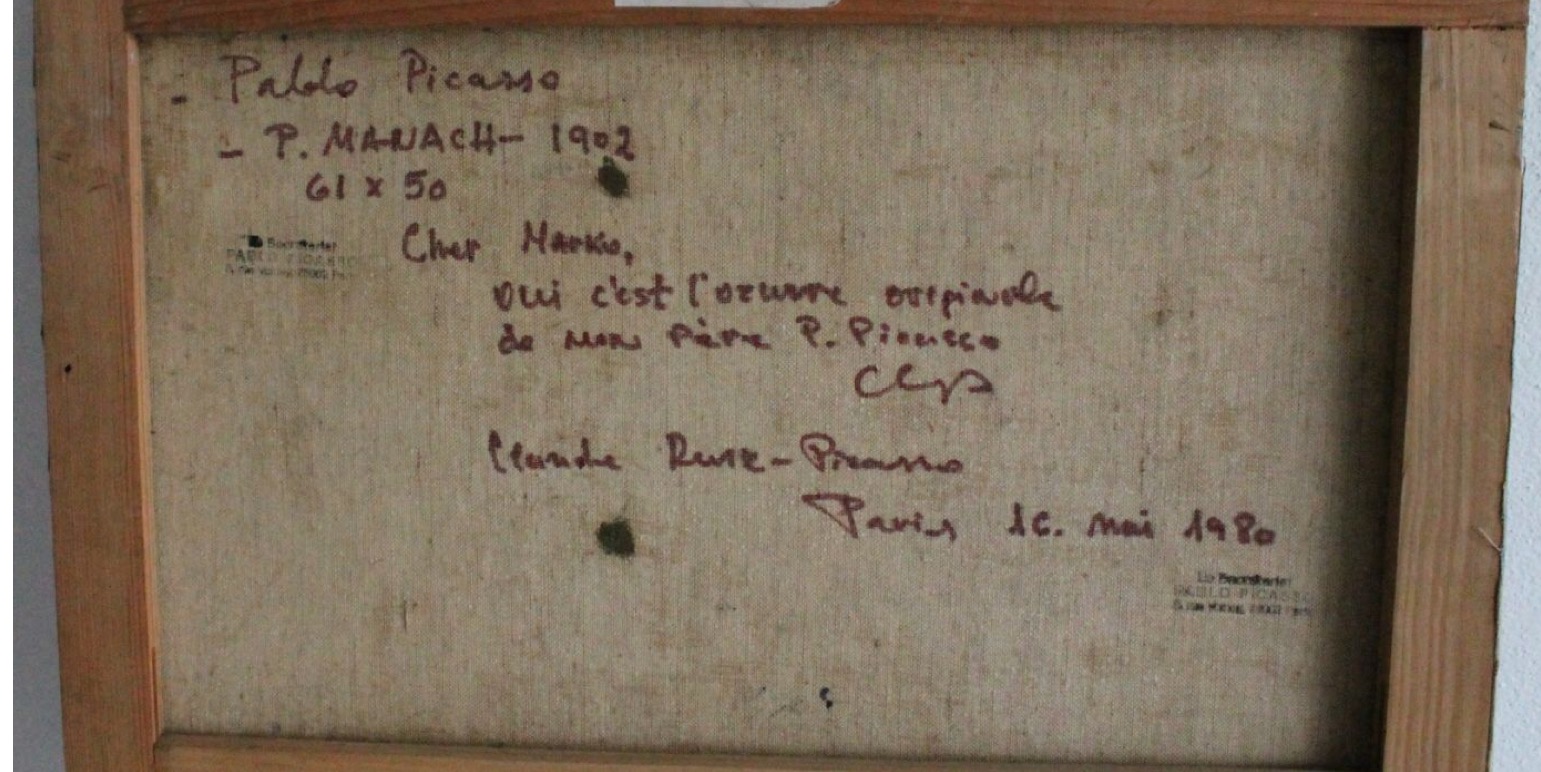 - Pablo Picasso
- P. MANACH - 1902
61 x 50
Cher Marko,
oui c'est l'oeuvre originale
de mon Père P. Picasso
Claude Ruiz-Picasso
Paris 16. mai 1980
PABLO PICASSO
PABLO PICASSO